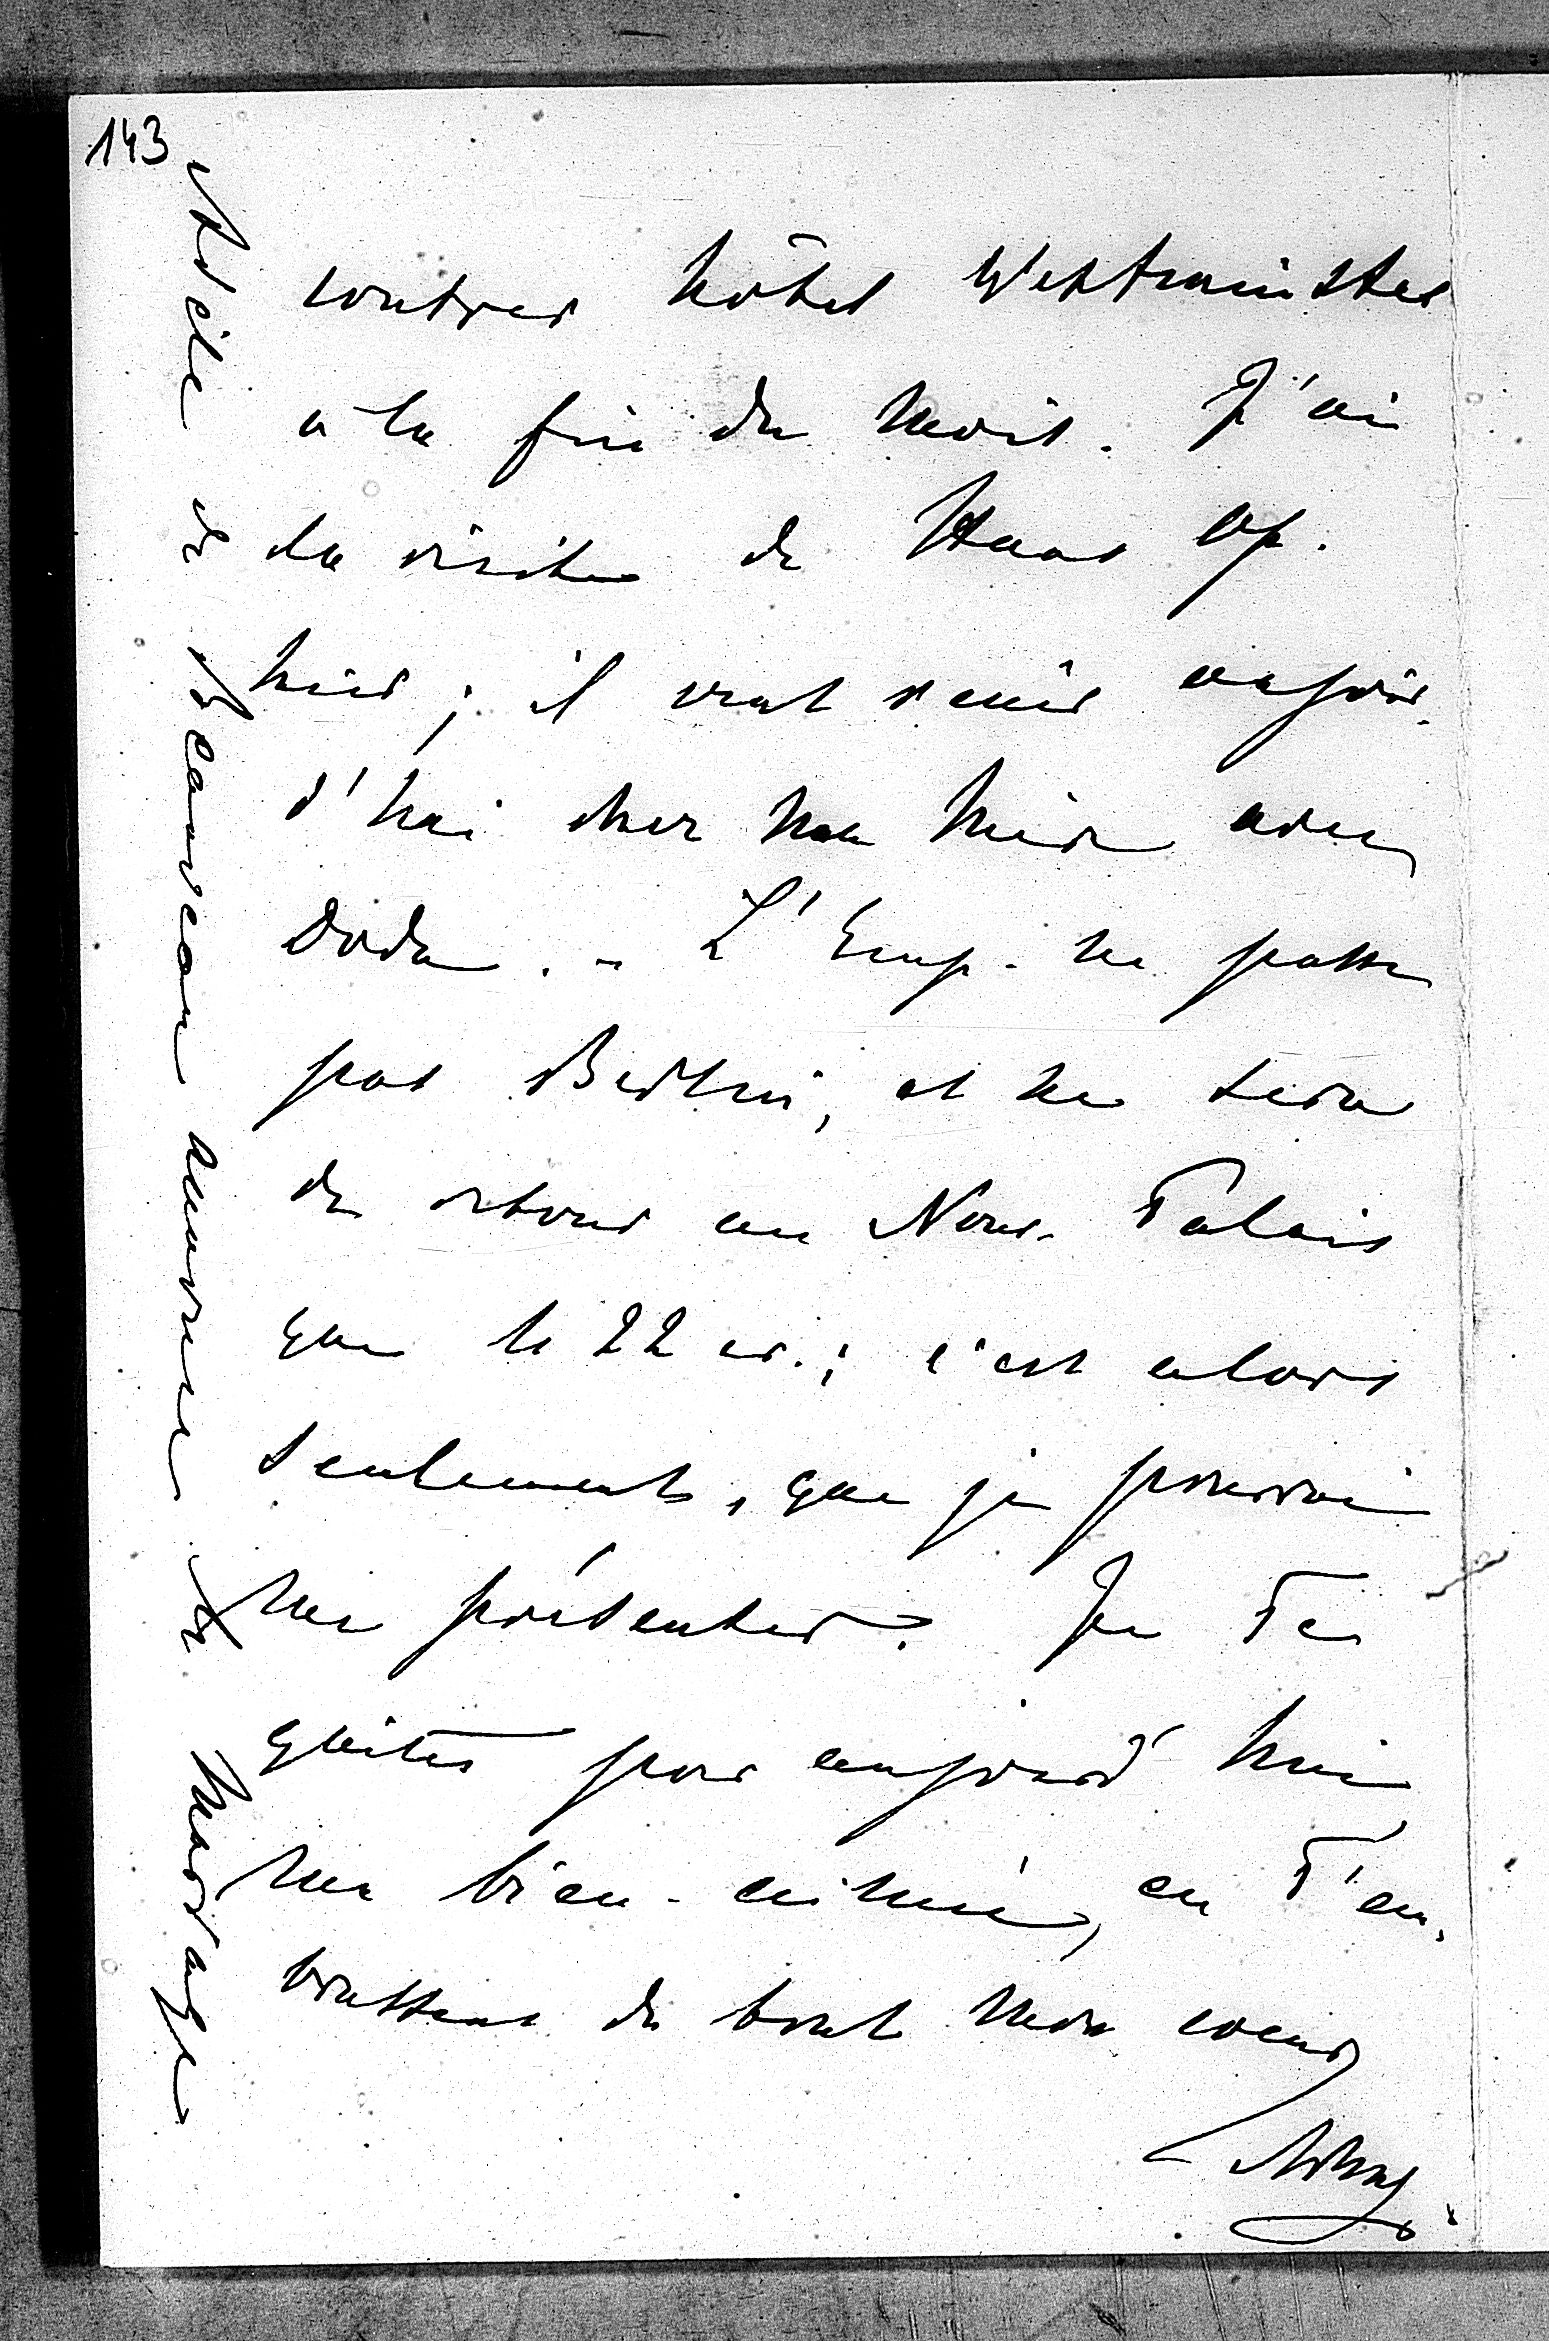 143
contrer hôtel Westminster
à la fin du mois. J'ai
la visite de Haas op.
hier; il veut venir aujour-
d'hui chez ma mère avec
Doda. - L'Emp. ne passe
pas Berlin, et ne sera
de retour au Nouv. Palais
que le 22 cr.; c'est alors
seulement, que je pourrai
me présenter. Je Te
quittes pour aujourd'hui
ma bien-aimée, en T'em-
brassant de tout mon coeur
Adèle et amoureuse